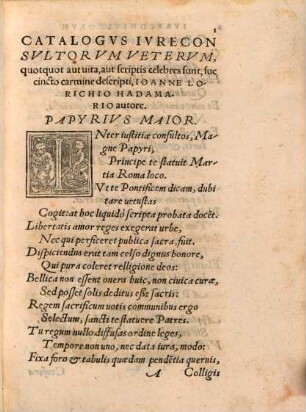 CATALOGVS IVRECON
SVLTORVM VETERVM,
quotquot aut vita, aut scriptis celebres sunt, suc
cincto carmine descripti, IOANNE LO-
RICHIO HADAMA-
RIO autore.
PAPYRIVS MAIOR.
INter iustitiæ consultos, Ma
gne Papyri,
Principe te statuit Mar-
tia Roma loco.
Vt te Pontificem dicam, dubi
tare uetustas
Cogit: at hoc liquidò scripta probata docẽt.
Libertatis amor reges exegerat urbe,
Nec qui perficeret publica sacra, fuit.
Dispiciendus erat tam celso dignus honore,
Qui pura coleret relligione deos:
Bellica non essent onera huic, non ciuica curæ,
Sed posset solis deditus esse sacris:
Regem sacrificum uotis communibus ergo
Selectum, sancti te statuere Patres.
Tu regum nullo diffusas ordine leges,
Tempore non uno, nec data iura, modo:
Fixa foro & tabulis quædam pendẽtia quernis,
A Colligis